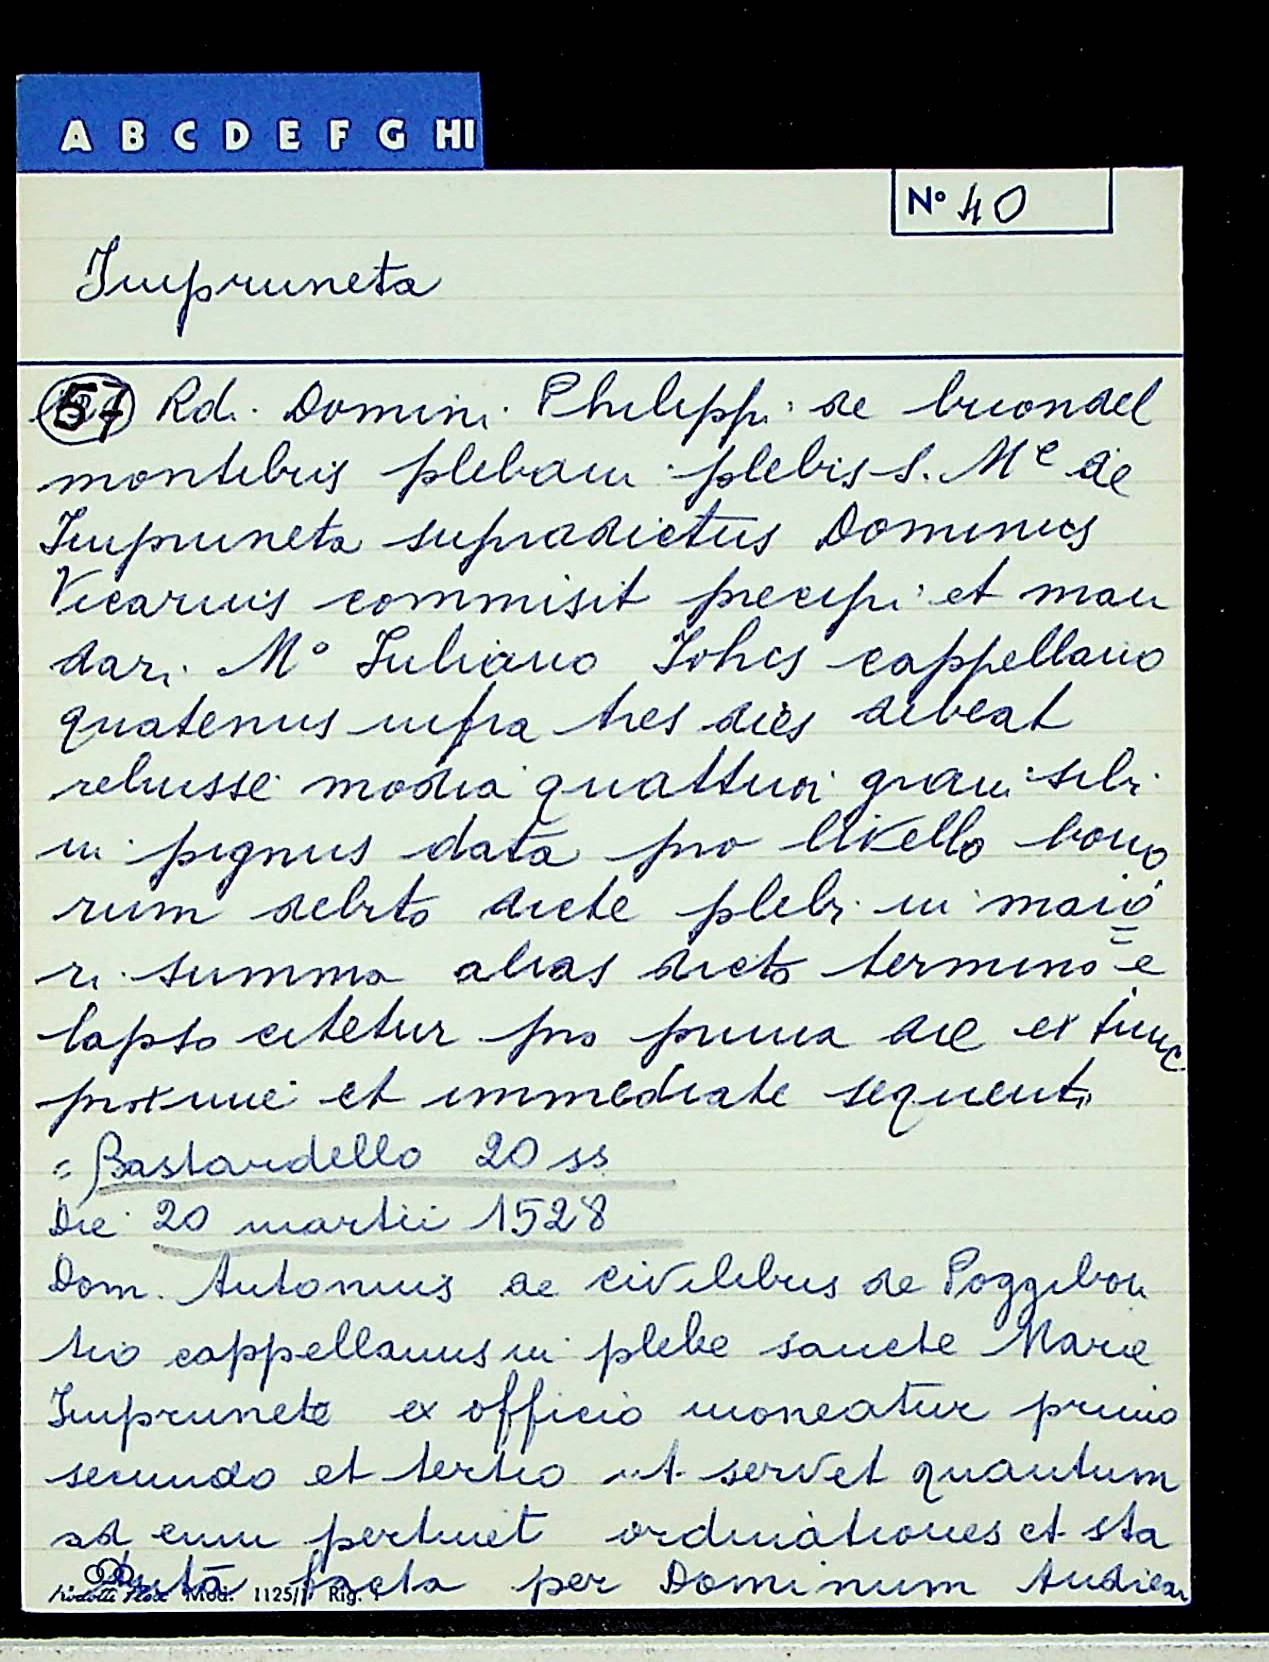 A B C D E F G HI
Nº 40
Impruneta
57 Rdi. Domini Philippi de buondel
montibus plebani plebis S. Me de
Impruneta supradictus Dominus
Vicarius commisit precipi et man
dari Mº Iuliano Johis cappellano
quatenus infra tres dies debeat
rehusse modia quattuor grani sibi
in pignus data pro livello bono
rum debito dicte plebi in maio
=
ri summa alias dicto termino e
lapso citetur pro prima die ex tunc
proxime et immediate sequenti
= Bastardello 20 ss
Die 20 martii 1528
Dom. Antonius de civilibus de Poggibon
tio cappellanus in plebe sancte Marie
Imprunete ex officio moneatur primo
secundo et tertio ut servet quantum
ad eum pertinet ordinationes et sta
tuta facta per Dominum Audien
Mod. 1125/1 Rig. 1